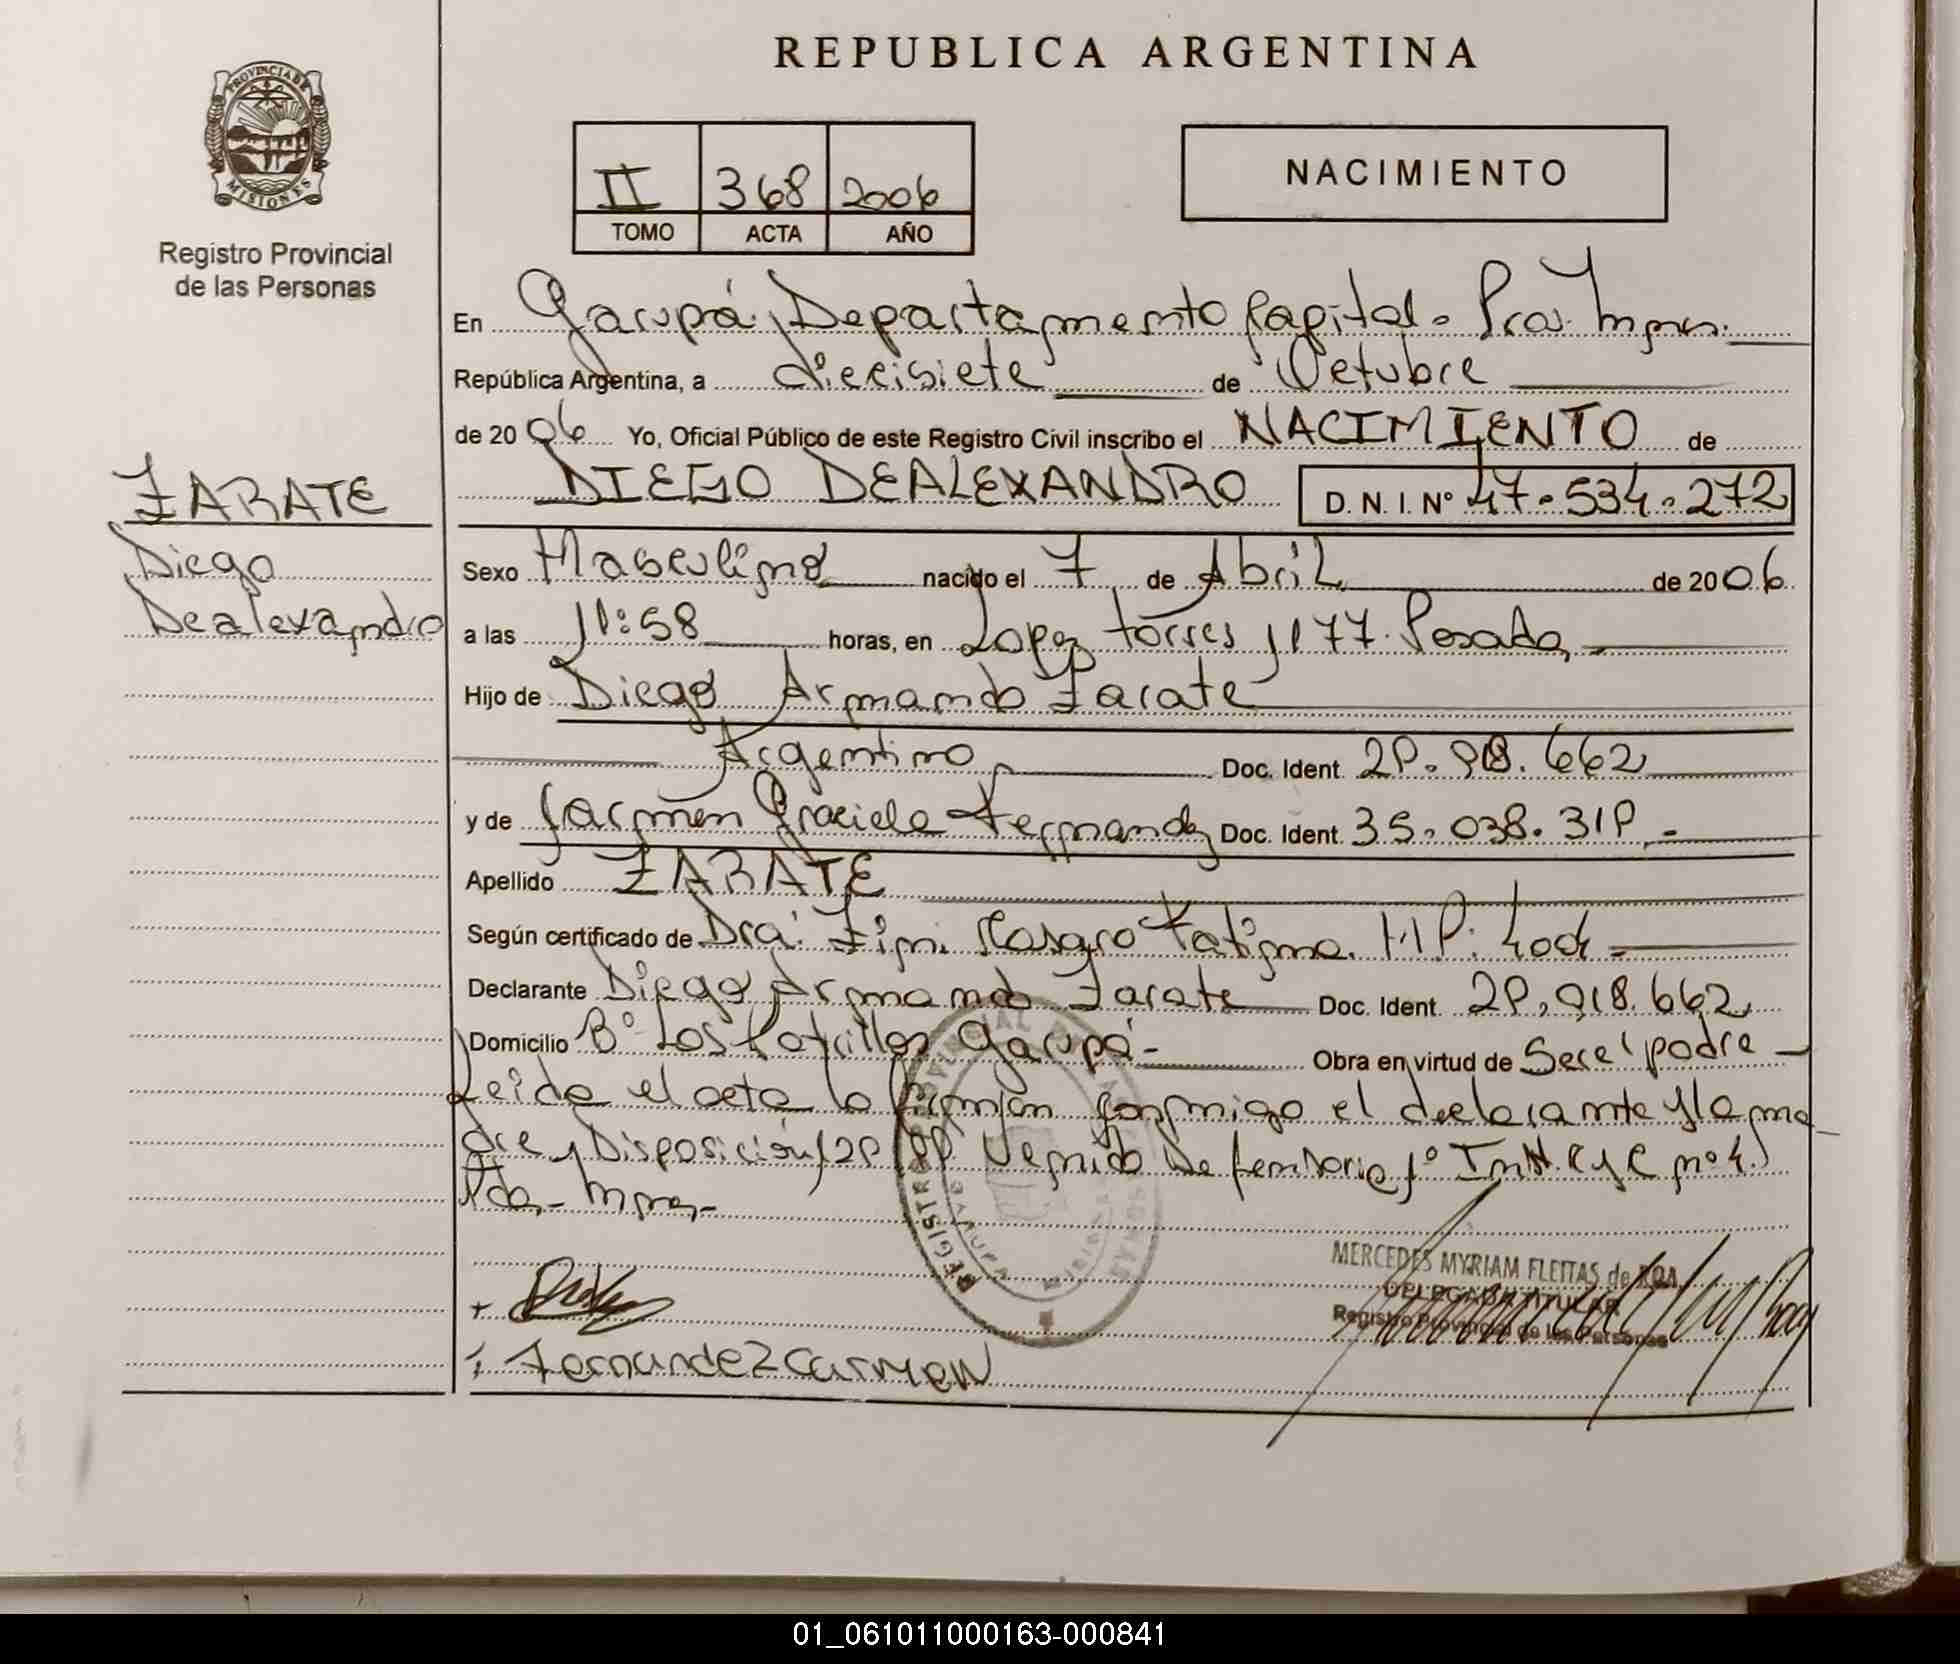 REPUBLICA ARGENTINA
PROVINCIA DE
MISIONES
Registro Provincial
de las Personas
II 368 2006
TOMO ACTA AÑO
NACIMIENTO
En Garupá, Departamento Capital. Prov. Mnes.
República Argentina, a diecisiete de Octubre
de 20 06 Yo, Oficial Público de este Registro Civil inscribo el NACIMIENTO de
DIEGO DEALEXANDRO D. N. I. Nº 47.534.272
ZARATE
Diego
Dealexandro
Sexo Masculino nacido el 7 de Abril de 20 06
a las 11:58 horas, en Lopez Torres 1177. Posadas
Hijo de Diego Armando Zarate
Argentino Doc. Ident. 29.918.662
y de Carmen Graciela Fernandez Doc. Ident. 35.038.319
Apellido ZARATE
Según certificado de Dra. Rosario Fatima. M.P.
Declarante Diego Armando Zarate Doc. Ident. 29.918.662
Domicilio Bº Los Potrillos Garupá Obra en virtud de Ser el padre
Leida el acta la firman conmigo el declarante y la ma-
dre y Disposición
Pdas.- Mnes.-
MERCEDES MYRIAM FLEITAS de ROA
DELEGADA TITULAR
Registro Provincial de las Personas
Fernandez Carmen
01_061011000163-000841